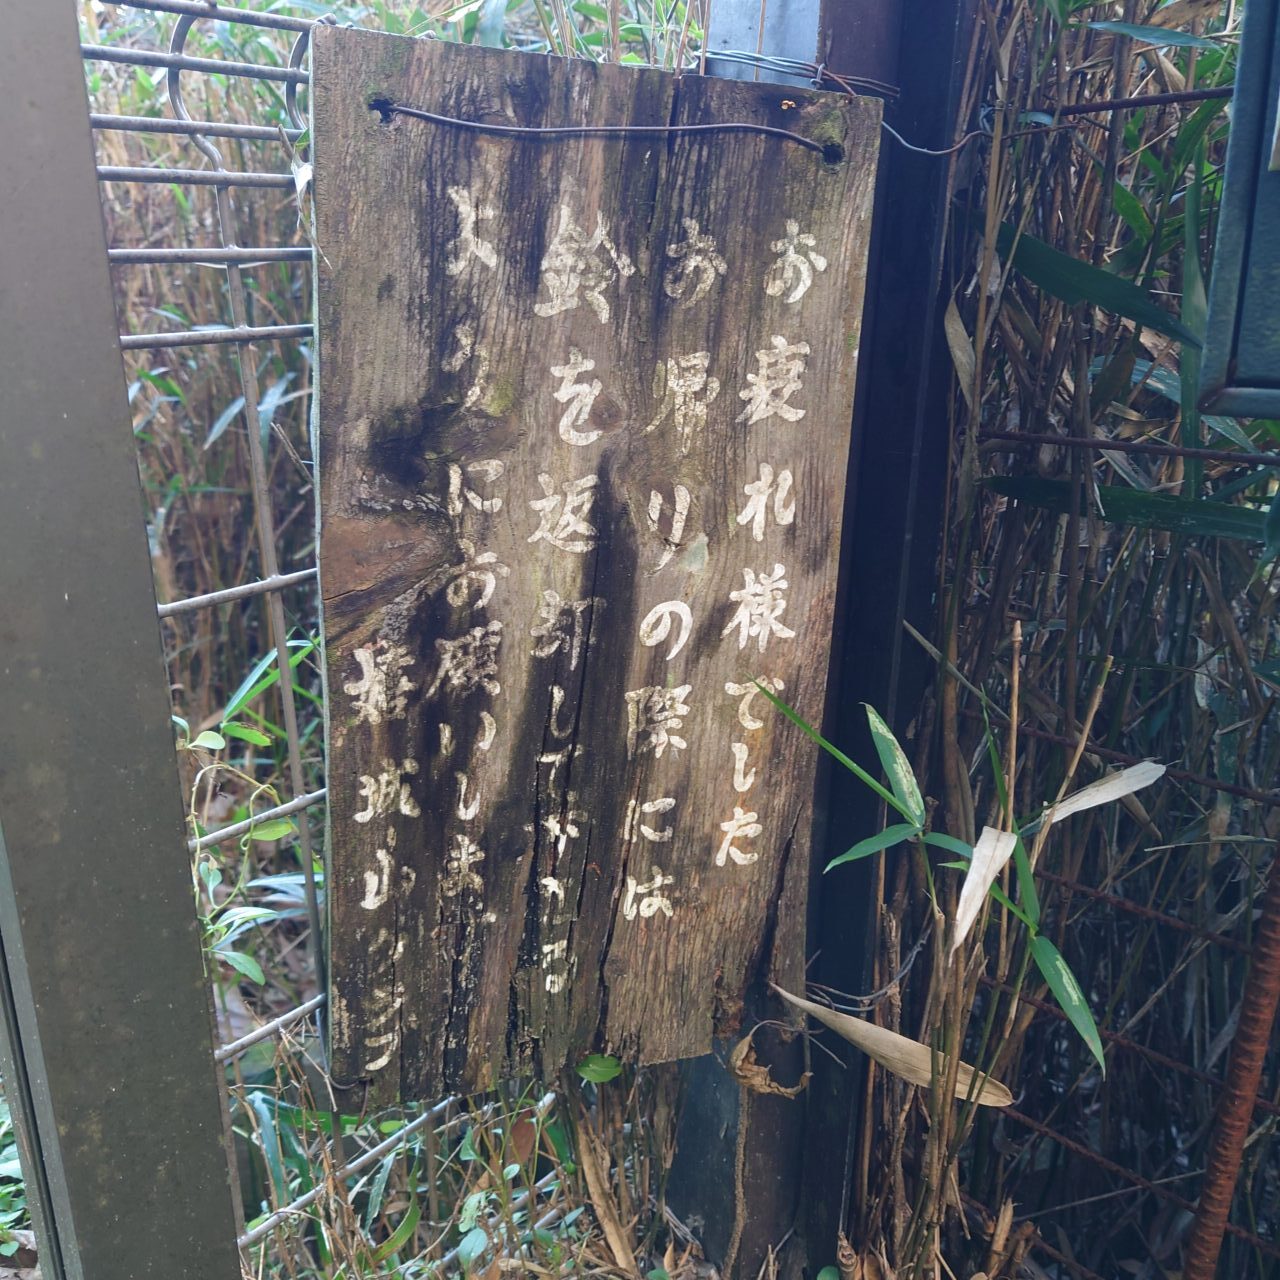 お疲れ様でした
お帰りの際には
鈴を返却して下さる
ようにお願いします
城山